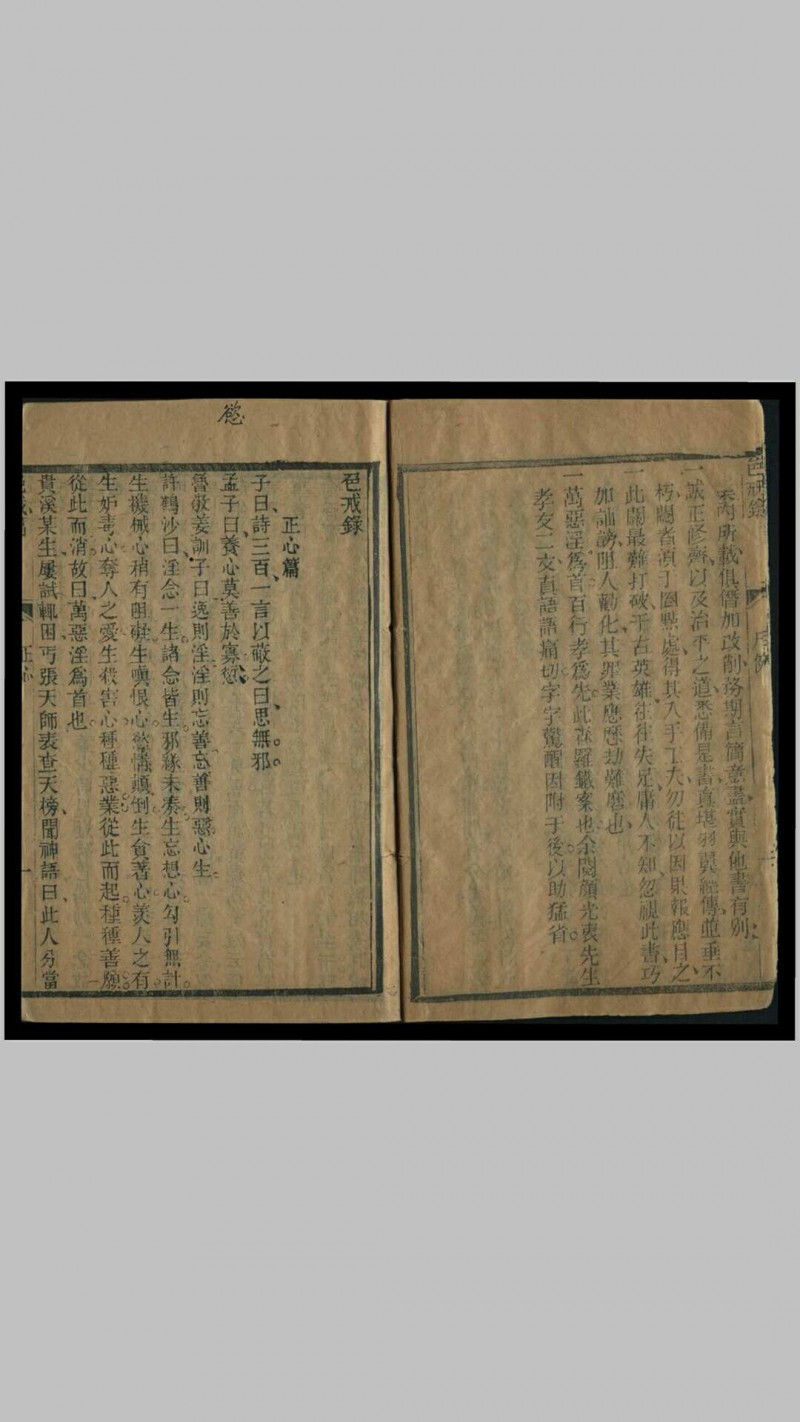 色戒錄
本內所載俱僭加改削務期言簡意盡實與他書有別
一誠正修齊以及治平之道悉備是書真堪羽翼經傳並垂不
朽閱者須于圈點處得其入手工夫勿徒以因果報應目之
一此關最難打破千古英雄往往失足庸人不知忽視此書巧
加訕謗阻人勸化其罪業應歷劫難磨也
一萬惡淫為首百行孝為先此森羅鐵案也余閱顏光衷先生
孝友二文真語語痛切字字驚醒因附于後以助猛省
慾
色戒錄
正心篇
子曰詩三百一言以蔽之曰思無邪
孟子曰養心莫善於寡慾
魯敬姜訓子曰逸則淫淫則忘善忘善則惡心生
許鶴沙曰淫念一生諸念皆生邪緣未湊生忘想心勾引無計
生機械心稍有阻礙生嗔恨心慾情顛倒生貪著心羨人之有
生妒毒心奪人之愛生殺害心種種惡業從此而起種種善願
從此而消故曰萬惡淫為首也
貴溪某生屢試輒困丐張天師表查天榜聞神語曰此人分當
正心